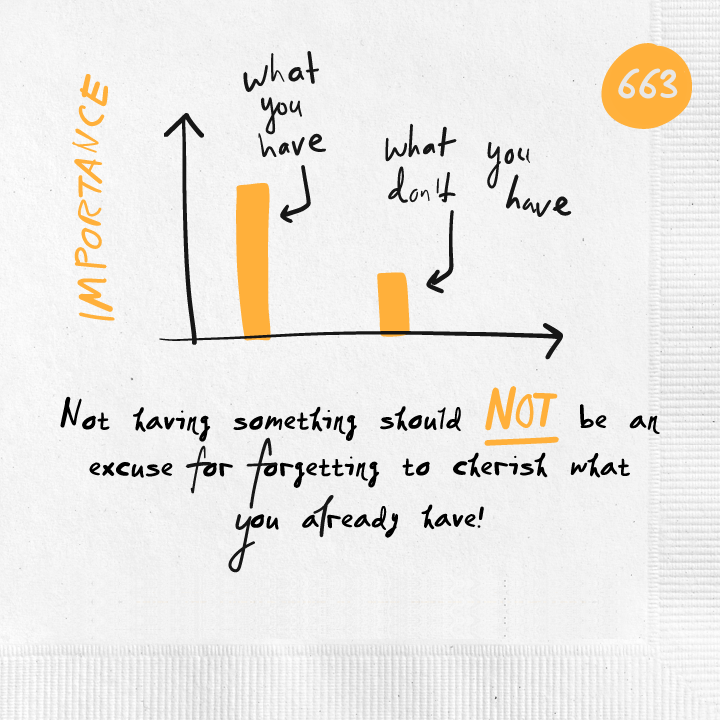 663
IMPORTANCE
what
you
have
what you
don't have
Not having something should NOT be an
excuse for forgetting to cherish what
you already have!